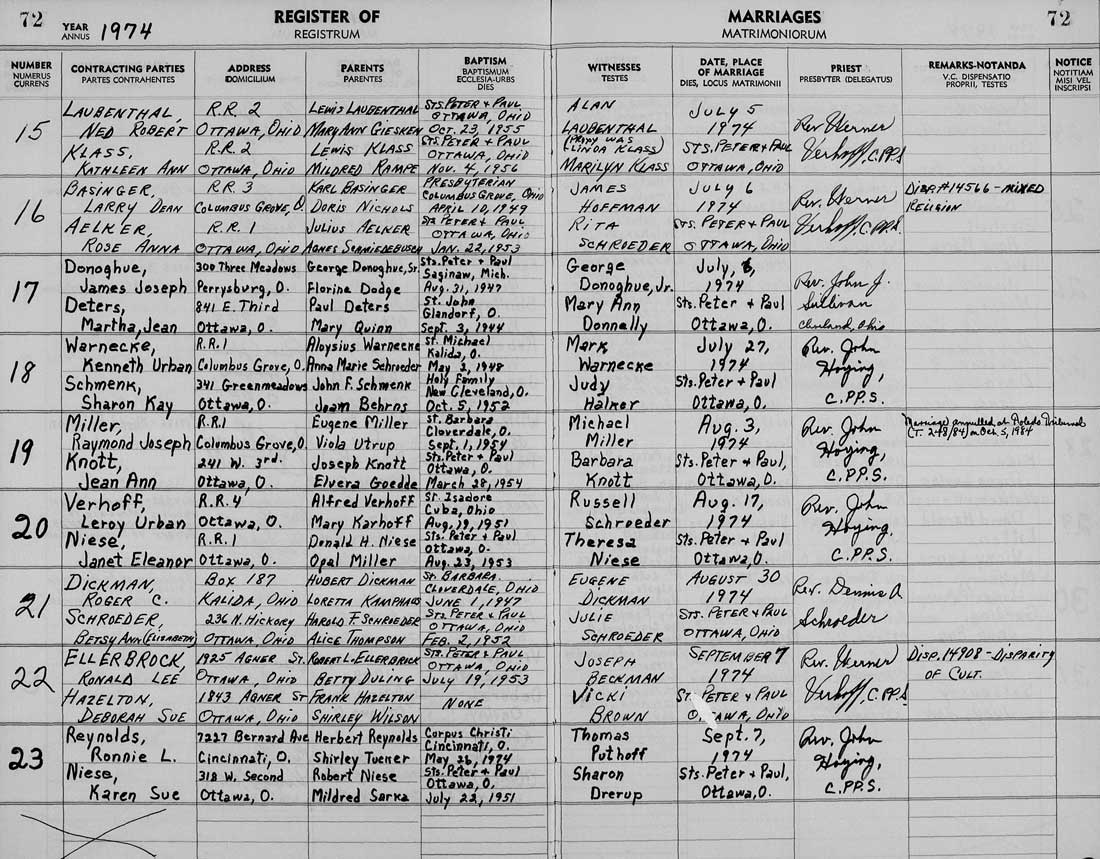 72 YEAR ANNUS 1974 REGISTER OF REGISTRUM
MARRIAGES MATRIMONIORUM 72
NUMBER NUMERUS CURRENS
CONTRACTING PARTIES PARTES CONTRAHENTES
ADDRESS DOMICILIUM
PARENTS PARENTES
BAPTISM BAPTISMUM ECCLESIA-URBS DIES
WITNESSES TESTES
DATE, PLACE OF MARRIAGE DIES, LOCUS MATRIMONII
PRIEST PRESBYTER (DELEGATUS)
REMARKS-NOTANDA V.C. DISPENSATIO PROPRII, TESTES
NOTICE NOTITIAM MISI VEL INSCRIPSI
15
LAUBENTHAL,
NED ROBERT
KLASS,
KATHLEEN ANN
R.R. 2
OTTAWA, OHIO
R.R. 2
OTTAWA, OHIO
LEWIS LAUBENTHAL
MARY ANN GIESKEN
LEWIS KLASS
MILDRED RAMPE
STS. PETER + PAUL
OTTAWA, OHIO
OCT. 23, 1955
STS. PETER + PAUL
OTTAWA, OHIO
NOV. 4, 1956
ALAN
LAUBENTHAL
(PROXY WAS
LINDA KLASS)
MARILYN KLASS
JULY 5
1974
STS. PETER + PAUL
OTTAWA, OHIO
Rev. Werner
Verhoff, C.PP.S.
16
BASINGER,
LARRY DEAN
AELKER,
ROSE ANNA
R.R. 3
COLUMBUS GROVE, O.
R.R. 1
OTTAWA, OHIO
KARL BASINGER
DORIS NICHOLS
JULIUS AELKER
AGNES SCHMIEDEBUSCH
PRESBYTERIAN
COLUMBUS GROVE, OHIO
APRIL 10, 1949
STS PETER + PAUL
OTTAWA, OHIO
JAN. 22, 1953
JAMES
HOFFMAN
RITA
SCHROEDER
JULY 6
1974
STS. PETER + PAUL
OTTAWA, OHIO
Rev. Werner
Verhoff, C.PP.S.
DISP. #14566 - MIXED
RELIGION
17
Donoghue,
James Joseph
Deters,
Martha, Jean
300 Three Meadows
Perrysburg, O.
841 E. Third
Ottawa, O.
George Donoghue, Sr.
Florine Dodge
Paul Deters
Mary Quinn
Sts. Peter + Paul
Saginaw, Mich.
Aug. 31, 1947
St. John
Glandorf, O.
Sept. 3, 1944
George
Donoghue, Jr.
Mary Ann
Donnelly
July, 6,
1974
Sts. Peter + Paul
Ottawa, O.
Rev. John J.
Sullivan
Cleveland, Ohio
18
Warnecke,
Kenneth Urban
Schmenk,
Sharon Kay
R.R. 1
Columbus Grove, O.
341 Greenmeadows
Ottawa, O.
Aloysius Warnecke
Anna Marie Schroeder
John F. Schmenk
Joam Behrns
St. Michael
Kalida, O.
May 2, 1948
Holy Family
New Cleveland, O.
Oct. 5, 1952
Mark
Warnecke
Judy
Halker
July 27,
1974
Sts. Peter + Paul
Ottawa, O.
Rev. John
Hoying,
C.PP.S.
19
Miller,
Raymond Joseph
Knott,
Jean Ann
R.R. 1
Columbus Grove, O.
241 W. 3rd.
Ottawa, O.
Eugene Miller
Viola Utrup
Joseph Knott
Elvera Goedde
St. Barbara
Cloverdale, O.
Sept. 1, 1954
Sts. Peter + Paul
Ottawa, O.
March 28, 1954
Michael
Miller
Barbara
Knott
Aug. 3,
1974
Sts. Peter + Paul,
Ottawa, O.
Rev. John
Hoying,
C.PP.S.
Marriage annulled at Toledo Tribunal
(T. 248/84) on Oct 5, 1984
20
Verhoff,
Leroy Urban
Niese,
Janet Eleanor
R.R. 4
Ottawa, O.
R.R. 1
Ottawa, O.
Alfred Verhoff
Mary Karhoff
Donald H. Niese
Opal Miller
St. Isadore
Cuba, Ohio
Aug. 19, 1951
Sts. Peter + Paul
Ottawa, O.
Aug. 23, 1953
Russell
Schroeder
Theresa
Niese
Aug. 17,
1974
Sts. Peter + Paul
Ottawa, O.
Rev. John
Hoying,
C.PP.S.
21
DICKMAN,
ROGER C.
SCHROEDER,
BETSY ANN (ELIZABETH)
BOX 187
KALIDA, OHIO
236 N. HICKORY
OTTAWA, OHIO
HUBERT DICKMAN
LORETTA KAMPHAUS
HAROLD F. SCHROEDER
ALICE THOMPSON
ST. BARBARA
CLOVERDALE, OHIO
JUNE 1, 1947
STS. PETER + PAUL
OTTAWA, OHIO
FEB. 2, 1952
EUGENE
DICKMAN
JULIE
SCHROEDER
AUGUST 30
1974
STS. PETER + PAUL
OTTAWA, OHIO
Rev. Dennis A
Schroeder
22
ELLERBROCK,
RONALD LEE
HAZELTON,
DEBORAH SUE
1925 AGNER ST.
OTTAWA, OHIO
1843 AGNER ST
OTTAWA, OHIO
ROBERT L. ELLERBROCK
BETTY DULING
FRANK HAZELTON
SHIRLEY WILSON
STS. PETER + PAUL
OTTAWA, OHIO
JULY 19, 1953
NONE
JOSEPH
BECKMAN
VICKI
BROWN
SEPTEMBER 7
1974
ST PETER + PAUL
OTTAWA, OHIO
Rev. Werner
Verhoff, C.PP.S
DISP. 14908 - DISPARITY
OF CULT.
23
Reynolds,
Ronnie L.
Niese,
Karen Sue
7227 Bernard Ave
Cincinnati, O.
318 W. Second
Ottawa, O.
Herbert Reynolds
Shirley Tucker
Robert Niese
Mildred Sarka
Corpus Christi
Cincinnati, O.
May 26, 1974
Sts. Peter + Paul
Ottawa, O.
July 22, 1951
Thomas
Puthoff
Sharon
Drerup
Sept. 7,
1974
Sts. Peter + Paul,
Ottawa, O.
Rev. John
Hoying,
C.PP.S.